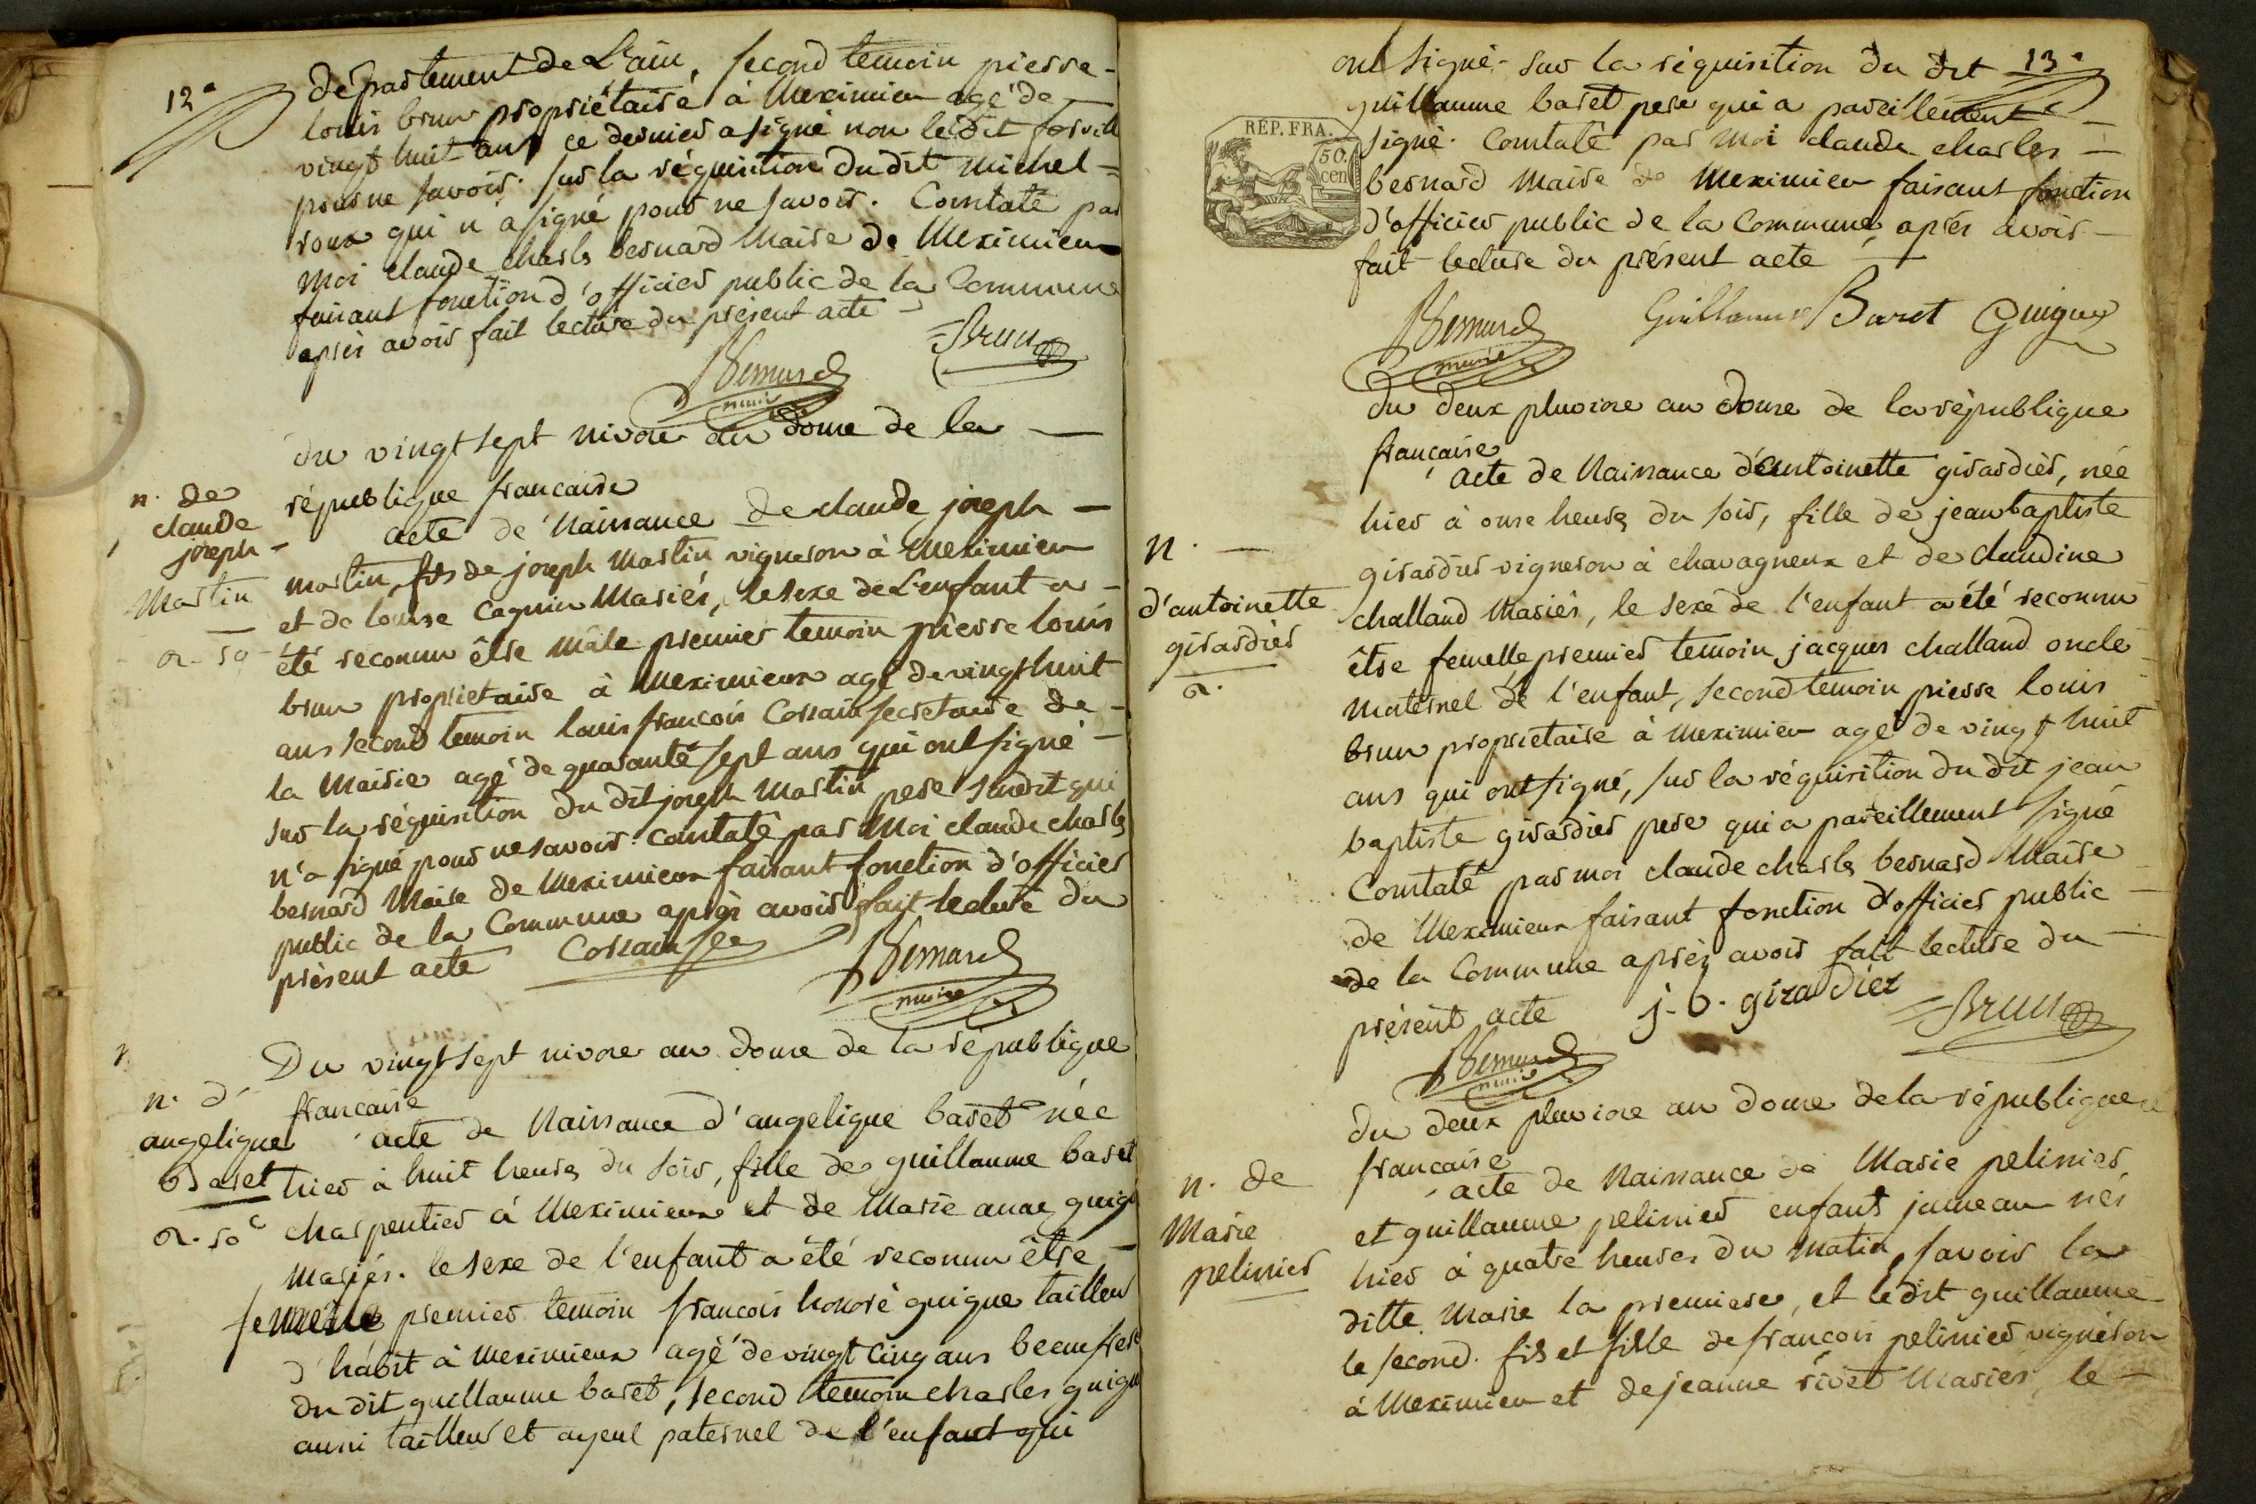 12e
département de L'ain, second temoin pierre-
louis brun propriétaire à Meximieu agé de
vingt huit ans ce dernier a signé non le dit
pour ne savoir. sur la réquisition du dit michel-
roux qui n'a signé pour ne savoir. Constaté par
moi claude charles bernard Maire de Meximieux
faisant fonction d'officier public de la Commune
après avoir fait lecture du présent acte
Bernard
maire
Brun
Du vingt sept nivose an douze de la
n. de
claude
joseph
Martin
république francaise
acte de Naissance de claude joseph
martin fils de joseph Martin vigneron à Meximieu
et de louise Mariés, le sexe de L'enfant a
été reconnu être Mâle premier temoin pierre louis
brun propriétaire à Meximieux agé de vingt huit
ans second temoin louis francois Corrain secretaire de
la Mairie agé de quarante sept ans qui ont signé
sur la réquisition du dit joseph Martin pere susdit qui
n'a signé pour ne savoir. constaté par Moi claude charles
bernard Maire de Meximieux faisant fonction d'officier
public de la Commune après avoir fait lecture du
présent acte
Corrain
Bernard
maire
Du vingt sept nivose an douze de la république
n. d'
angelique
Baret
francaise
acte de Naissance d'angelique baret née
hier à huit heures du soir, fille de guillaume baret
charpentier à Meximieux et de Marie anne guigu
Mariés. le sexe de l'enfant a été reconnu être
femelle premier temoin francois honoré guigue tailleur
d'habit à meximieux agé de vingt cinq ans beaufrere
du dit guillaume baret, second temoin charles guigu
aussi tailleur et ayeul paternel de l'enfant qui
13e
ont signé sur la réquisition du dit
guillaume baret pere qui a pareillement
signé. Constaté par moi claude charles
bernard Maire de Meximieu faisant fonction
d'officier public de la Commune après avoir
fait lecture du présent acte
RÉP. FRA.
50.
cen
Bernard
maire
Guillaume Baret
Guigue
Du deux pluviose an douze de la république
francaise
acte de Naissance d'antoinette girardier, née
hier à onze heures du soir, fille de jean baptiste
n.
d'antoinette
girardier
girardier vigneron à chavagneux et de claudine
challand Mariés, le sexe de l'enfant a été reconnu
être femelle premier temoin jacques challand oncle
maternel de l'enfant, second temoin pierre louis
brun propriétaire à meximieu agé de vingt huit
ans qui ont signé, sur la réquisition du dit jean
baptiste girardier pere qui a pareillement signé
Constaté par moi claude charles bernard Maire
de Meximieux faisant fonction d'officier public
de la Commune après avoir fait lecture du
présent acte
j. b. girardier
Brun
Bernard
maire
Du deux pluviose an douze de la république
n. de
Marie
pelinier
francaise
acte de Naissance de Marie pelinier
et guillaume pelinier enfants jumeau nés
hier à quatre heures du matin, savoir la
ditte Marie la premiere, et le dit guillaume
le second. fils et fille de francois pelinier vigneron
à Meximieu et de jeanne rivet Mariés, le